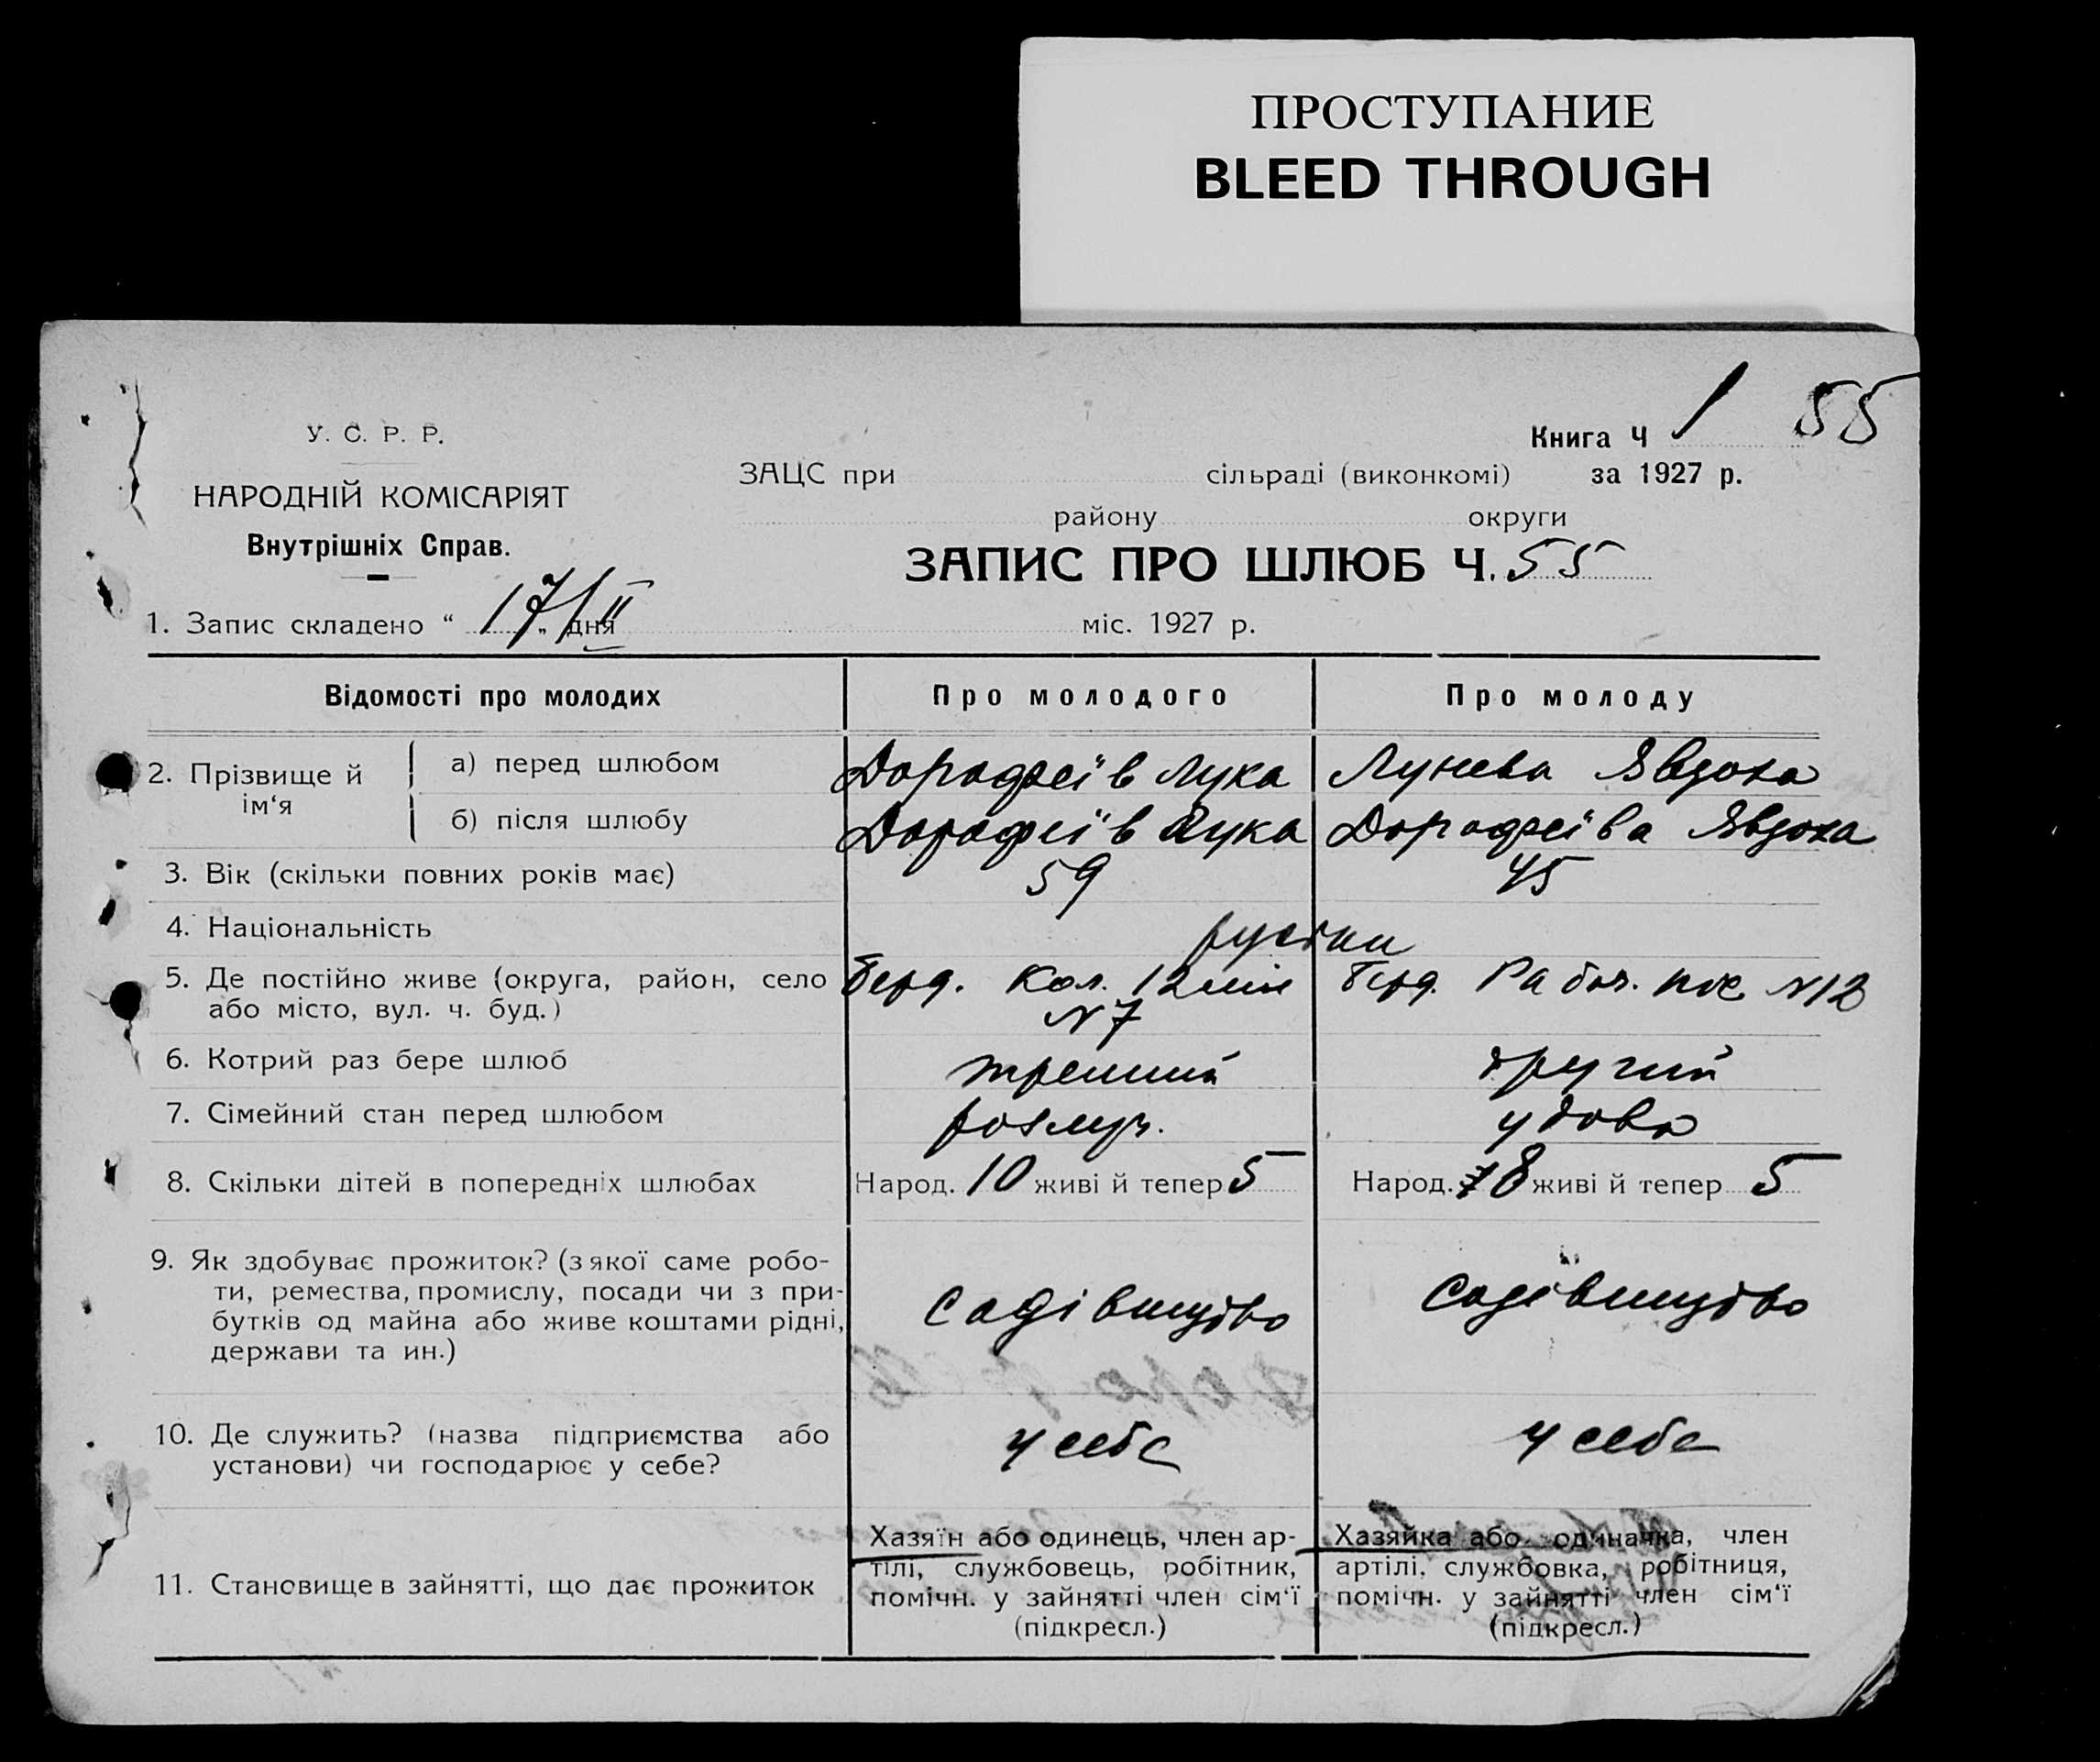 ПРОСТУПАНИЕ
BLEED THROUGH
Книга Ч 1 55
У. С. Р. Р.
НАРОДНІЙ КОМІСАРІЯТ
Внутрішніх Справ.
ЗАЦС при сільраді (виконкомі) за 1927 р.
району округи
ЗАПИС ПРО ШЛЮБ Ч. 55
1. Запис складено “ 17/II „ дня міс. 1927 р.
Відомості про молодих
Про молодого
Про молоду
2. Прізвище й ім‘я
а) перед шлюбом
Дорофеїв Лука
Лунева Явдоха
б) після шлюбу
Дорофеїв Лука
Дорофеїва Явдоха
3. Вік (скільки повних років має)
59
45
4. Національність
5. Де постійно живе (округа, район, село
або місто, вул. ч. буд.)
Берд. Кол. 12
N 7
Берд. Рабоч. пос. N 12
6. Котрий раз бере шлюб
третий
другий
7. Сімейний стан перед шлюбом
розлуч.
удова
8. Скільки дітей в попередніх шлюбах
Народ. 10 живі й тепер 5
Народ. 8 живі й тепер 5
9. Як здобуває прожиток? (з якої саме робо-
ти, ремества, промислу, посади чи з при-
бутків од майна або живе коштами рідні,
держави та ин.)
садівництво
садівництво
10. Де служить? (назва підприємства або
установи) чи господарює у себе?
у себе
у себе
11. Становище в зайнятті, що дає прожиток
Хазяїн або одинець, член ар-
тілі, службовець, робітник,
помічн. у зайнятті член сім‘ї
(підкресл.)
Хазяйка або одиначка, член
артілі, службовка, робітниця,
помічн. у зайнятті член сім‘ї
(підкресл.)